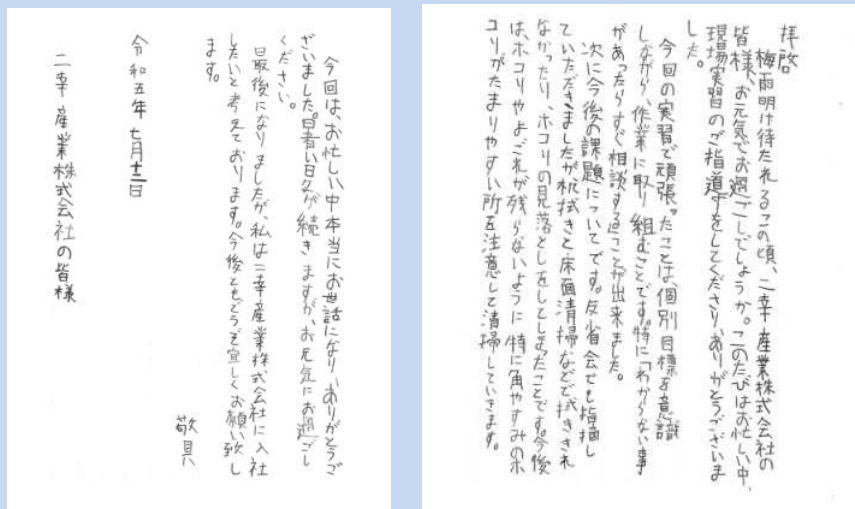 拝啓
梅雨明け待たれるこの頃、二幸産業株式会社の
皆様、お元気でお過ごしでしょうか。このたびはお忙しい中、
現場実習のご指導をしてくださり、ありがとうございま
した。
今回の実習で頑張ったことは、個別目標を意識
しながら、作業に取り組むことです。特に「わからない事
があったらすぐ相談する」ことが出来ました。
次に今後の課題についてです。反省会でも指摘し
ていただきましたが、机拭きと床面清掃などで拭ききれ
なかったり、ホコリの見落としをしてしまったことです。今後
は、ホコリやよごれが残らないように特に角やすみのホ
コリがたまりやすい所を注意して清掃していきます。
今回は、お忙しい中本当にお世話になり、ありがとうご
ざいました。暑い日々が続きますが、お元気にお過ごし
ください。
最後になりましたが、私は二幸産業株式会社に入社
したいと考えております。今後ともどうぞ宜しくお願い致し
ます。
敬具
令和五年 七月十二日
二幸産業株式会社の皆様